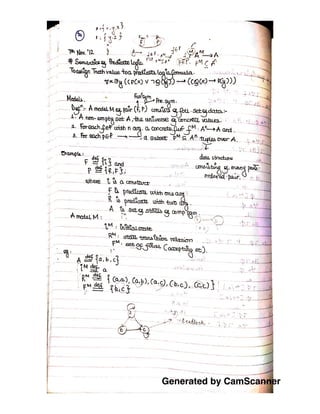 7th Nov '12
# Semantics of Predicate logic
To assign Truth value to a predicate logic formula.
∀x∃y ((P(x) ∨ ¬Q(y)) → (Q(x) → R(y)))
Models :
Fun Sym Pre. sym.
Defn :- A model M of pair (F, P) consists of foll. set of data :-
1. A non-empty set A, the universe of concrete values.
2. For each f∈F with n arg. a concrete fun f^M A^n → A and
3. For each p∈P a subset P^M ⊆ A^n tuples over A.
Example :
data structure
F def= {i} and
consisting of many parts
P def= {R, F};
ordered pair.
where i is a constant
F is predicate with one arg
R is predicate with two arg
A is set of states of comp
A model M :
i^M : Initial state
R^M : state transition relation
F^M : set of final (accepting st.)
eg:
A def= {a, b, c}
i^M def= a
R^M def= {(a,a), (a,b), (a,c), (b,c), (c,c)}
F^M def= {b, c}
a
b c
deadlock
Generated by CamScanner